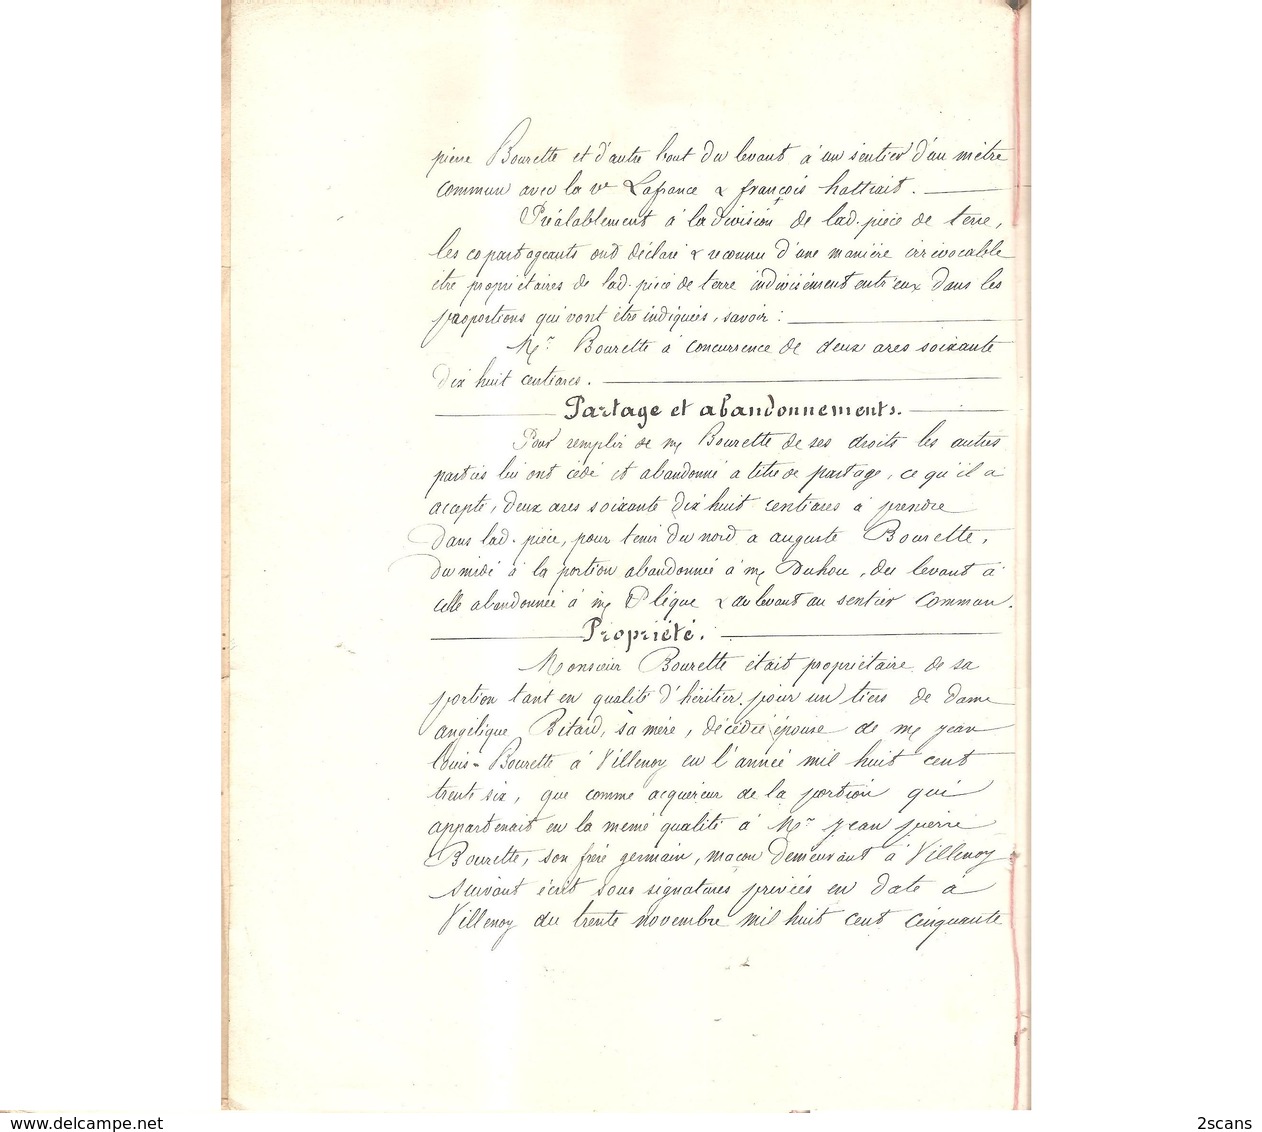 pierre Bourette et d'autre bout du levant à un sentier d'un mètre
commun avec la ve Lafrance & françois hattiait.
Préalablement à la division de lad. pièce de terre,
les copartageants ont déclaré & reconnu d'une manière irrévocable
être propriétaires de lad. pièce de terre indivisément entr'eux dans les
proportions qui vont être indiquées, savoir :
Mr Bourette à concurrence de deux ares soixante
dix huit centiares.
Partage et abandonnements.
Pour remplir de m Bourette de ses droits les autres
parties lui ont cédé et abandonné a titre de partage, ce qu'il a
accepté, deux ares soixante dix huit centiares à prendre
dans lad. pièce, pour tenir du nord a auguste Bourette,
du midi à la portion abandonnée à m Duhou, du levant à
celle abandonnée à m Plique & du levant au sentier commun.
Propriété.
Monsieur Bourette était propriétaire de sa
portion tant en qualité d'héritier pour un tiers de dame
angélique Bitard, sa mère, décédée épouse de m jean
louis Bourette à Villenoy en l'année mil huit cent
trente six, que comme acquéreur de la portion qui
appartenait en la même qualité à Mr jean pierre
Bourette, son frère germain, maçon demeurant à Villenoy
suivant écrit sous signatures privées en date à
Villenoy du trente novembre mil huit cent cinquante
2scans